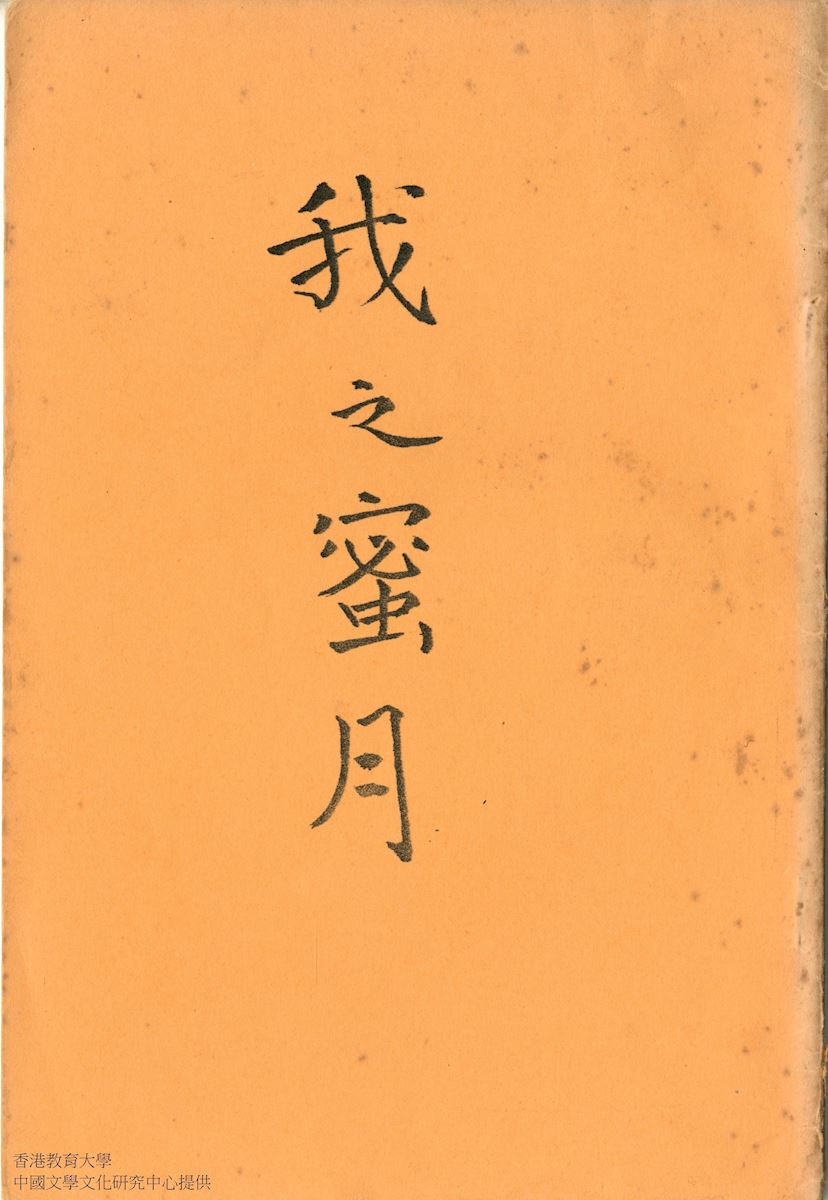 我之蜜月
香港教育大學
中國文學文化研究中心提供